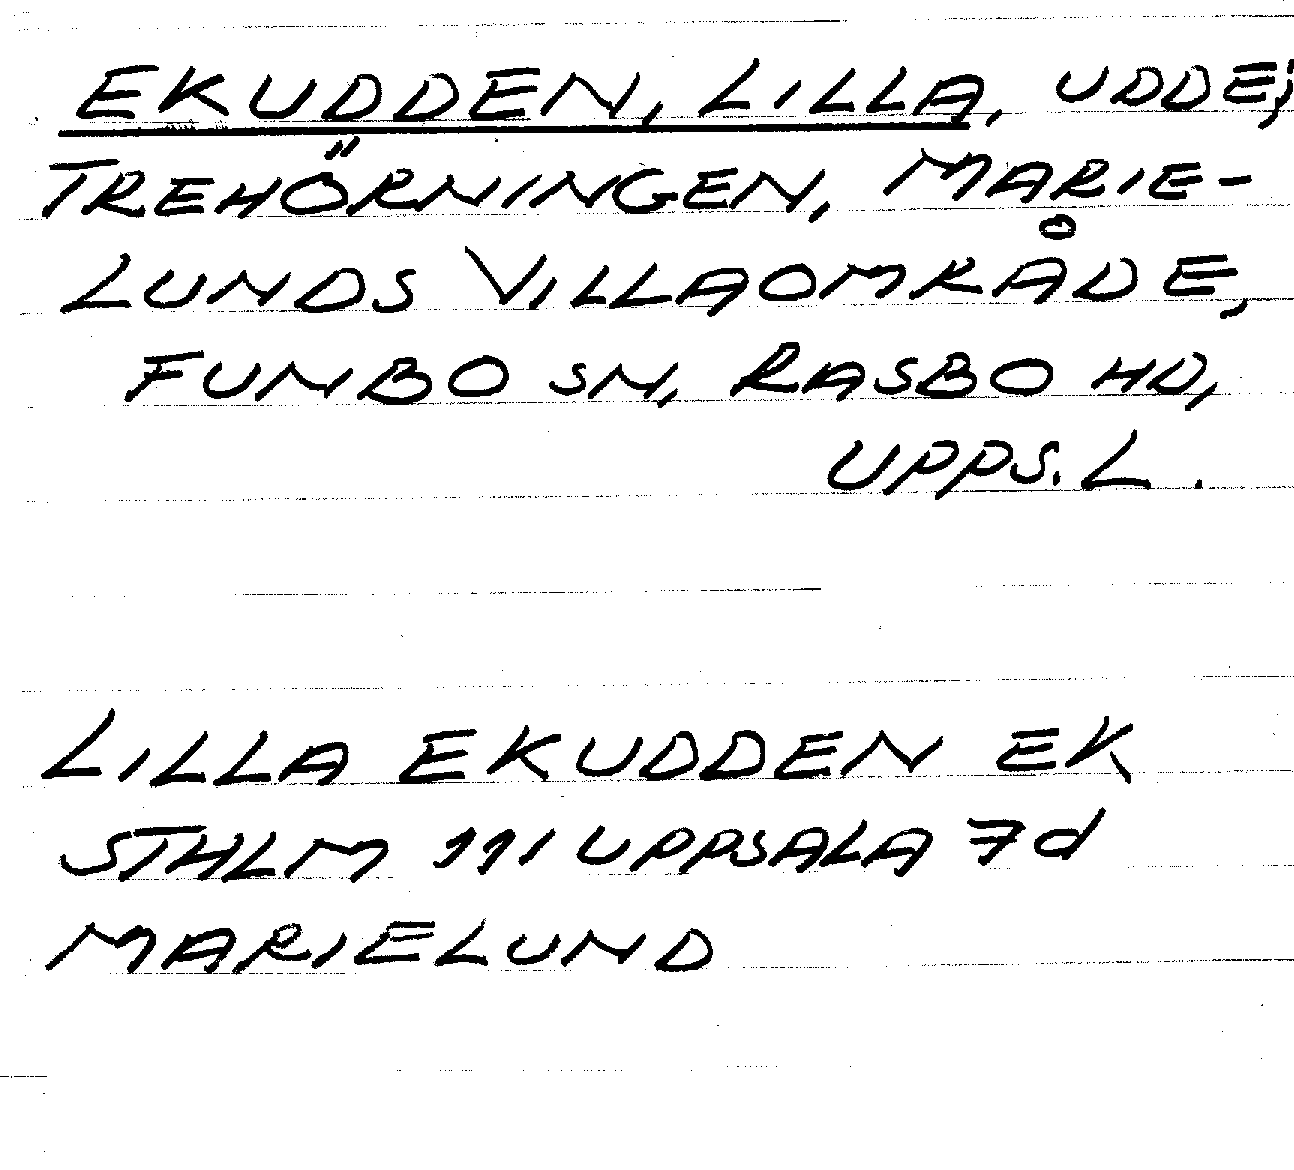 EKUDDEN, LILLA, UDDE;
TREHÖRNINGEN, MARIE-
LUNDS VILLAOMRÅDE,
FUNBO SN, RASBO HD,
UPPS. L.
LILLA EKUDDEN EK
STHLM 111 UPPSALA 7d
MARIELUND